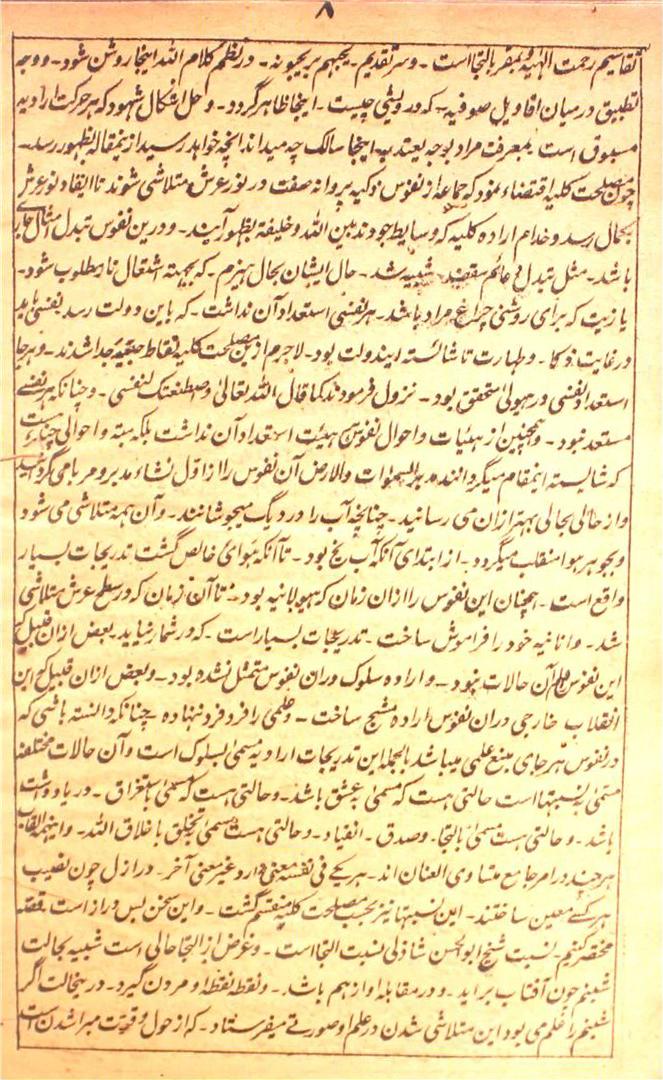 ۸
تقاسیم رحمت الهیه و بمقر بالتجا است - و سر تقدیم - یحبهم بر یحبونه - در نظم کلام الله اینجا روشن شود - و وجه
تطبیق در میان اقاویل صوفیه - که درویشی چیست - اینجا ظاهر گردد - و حل اشکال شهود که هر حرکت ارادیه
مسبوق است بمعرفت مراد بوجه یعتد به اینجا سالک چه میداند انچه خواهد رسید از ینمقاله بظهور رسد -
چون مصلحت کلیه اقتضاء نمود که جماعه از نفوس ذکیه پروانه صفت در نور عرش متلاشی شوند تا ایقاد نور عرش
بکمال رسد و خدام اراده کلیه که وسایط جودند بین الله و خلیفة بظهور آیند - و درین نفوس تبدل
باشد - مثل تبدل شبیه شد - حال ایشان بحال هیزم - که بجهته اشتعال نار مطلوب شود -
یا زیت که برای روشنی چراغ مراد باشد - هر نفسی استعداد آن نداشت - که باین دولت رسد نفسی باید
در غایت ذکا - و طهارت تا شائسته ایندولت بود - لاجرم ازین مصلحت کلیه نقاط جدا شدند - و هر جا
استعداد نفسی در هیولی متحقق بود - نزول فرمودند کما قال الله تعالیٰ و اصطنعتک لنفسی - و چنانکه هر نفسے
مستعد نبود - و همچنین از هیئیات و احوال نفوس همه هیئیت استعداد آن نداشت بلکه هیئته و احوالی
که شایسته اینمقام میگردانند مدبر السموات والارض آن نفوس را از اول نشاء مدبر و مربا می گردانید
و از حالی بحالی بهتر ازان می رسانید - چنانچه آب را در دیگ میجوشانند - و آن همه متلاشی می شود
و بجوهر هوا منقلب میگردد - از ابتدای آنکه آب یخ بود - تا آنکه هوای خالص گشت تدریجات بسیار
واقع است - همچنان این نفوس را ازان زمان که هیولانیه بود - تا آن زمان که در سطح عرش متلاشی
شد - و انانیه خود را فراموش ساخت - تدریجات بسیار است - که در شمار نیاید بعض ازان قبیل که
این نفوس را علم آن حالات نبود - و اراده سلوک دران نفوس متمثل نشده بود - و بعض ازان قبیل که این
انقلاب خارجی دران نفوس اراده مشبح ساخت - و علمی را فرد فرد نهاده چنانکه دانسته باشی که
در نفوس هر جای منبع علمی میباشد بالجمله این تدریجات ارادیه مسمیٰ بسلوک است و آن حالات مختلفه
مسمیٰ به نسبتها است حالتی هست که مسمیٰ به عشق باشد - و حالتی هست که مسمیٰ باستغراق - و در یادداشت
باشد - و حالتی هست مسمیٰ بالتجا - و صدق - انقیاد - و حالتی هست مسمیٰ بتخلق باخلاق الله - و اینهمه القاب
هر چند در امر جامع متساوی العنان اند - هر یکے فی نفسه معنی دارد غیر معنی آخر - در ازل چون نصیب
هر کسے معین ساختند - این نسبتها نیز بحسب مصلحت کلیه منقسم گشت - و این سخن بس دراز است قصه
مختصر کنیم - نسبت شیخ ابوالحسن شاذلی نسبت التجا است - و غرض از التجا حالی است شبیه بحالت
شبنم چون آفتاب بر آید - و در مقابله او از هم باشد - و نقطه نقطه او مردن گیرد - در ینحالت اگر
شبنم را علمی بود این متلاشی شدن در علم او صورتے میفرستاد - که از حول و قوت مبرا شدن است